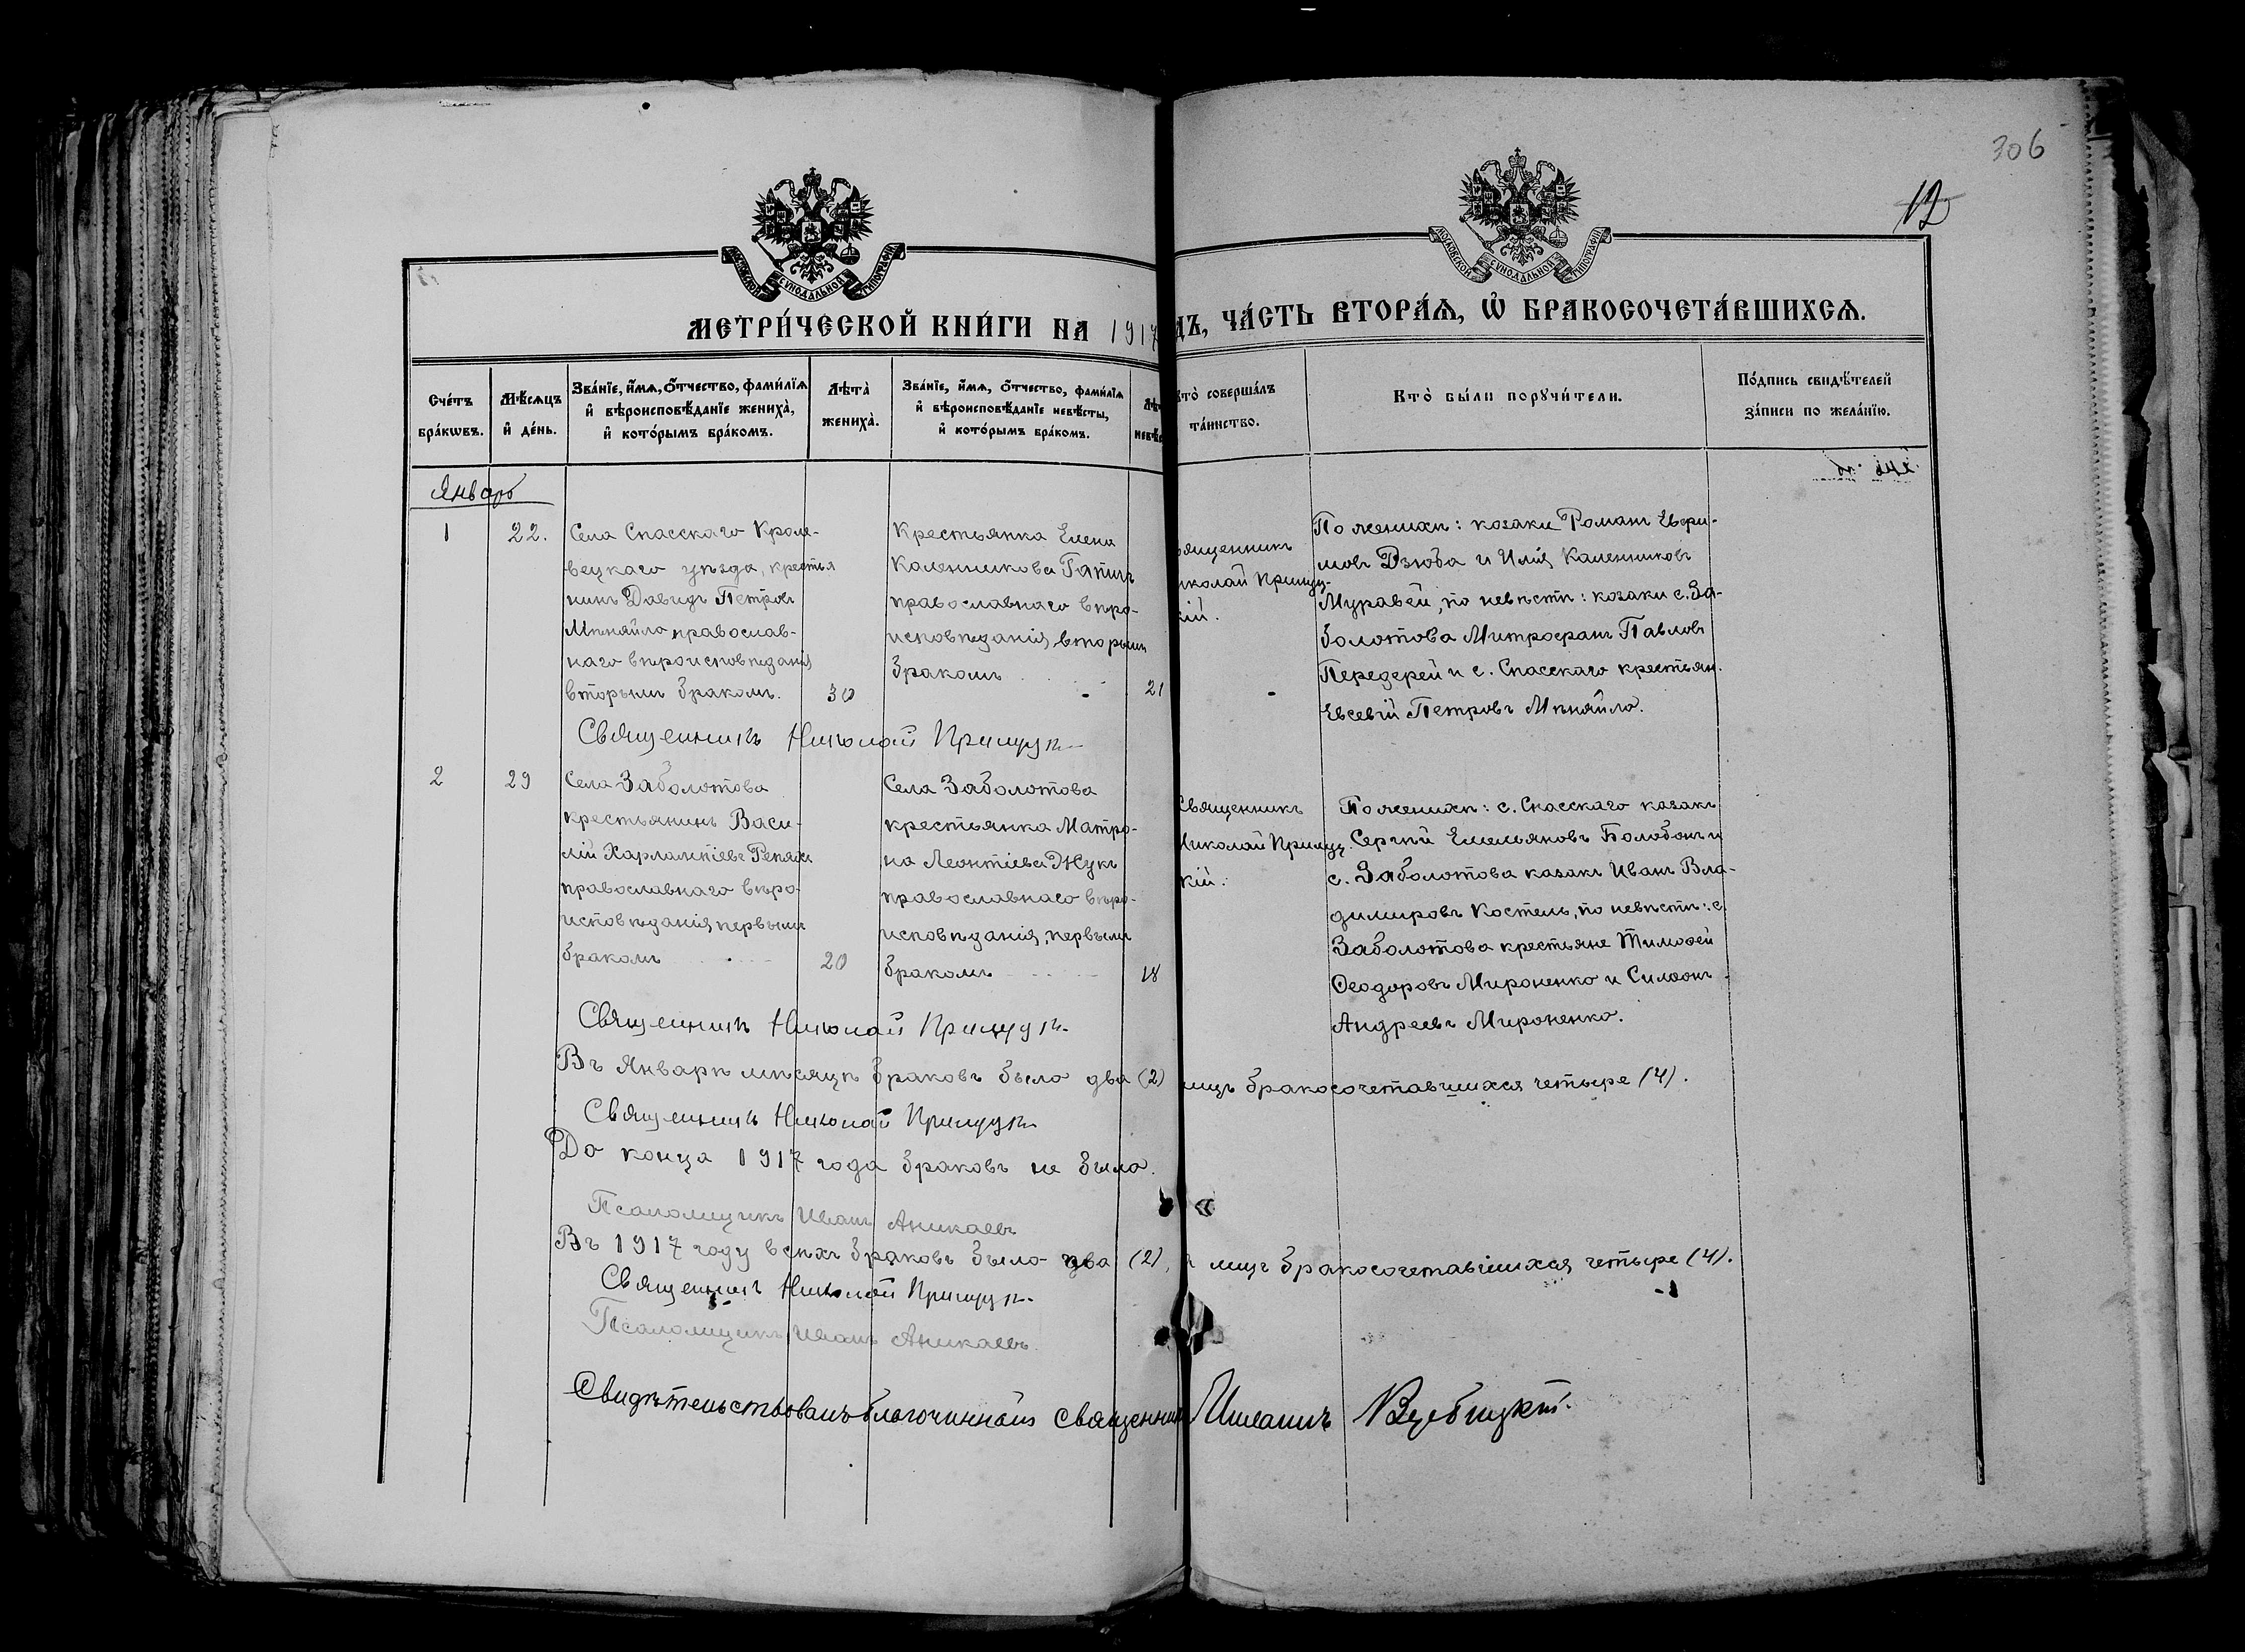 306
12
МОСКОВСКОЙ СѴНОДАЛЬНОЙ ТИПОГРАФІИ
МОСКОВСКОЙ СѴНОДАЛЬНОЙ ТИПОГРАФІИ
МЕТРИ́ЧЕСКОЙ КНИ́ГИ НА 1917
ДЪ, ЧА́СТЬ ВТОРА́Ѧ, Ѽ БРАКОСОЧЕТА́ВШИХСѦ.
Сче́тъ бра́кѡвъ.
Мѣ́сяцъ и де́нь.
Зва́нїе, и́мѧ, ѻ́тчество, фами́лїѧ и вѣроисповѣ́данїе жениха̀, и кото́рымъ бра́комъ.
Лѣта̀ жениха̀.
Зва́нїе, и́мѧ, ѻ́тчество, фами́лїѧ и вѣроисповѣ́данїе невѣ́сты, и кото́рымъ бра́комъ.
Кто̀ соверша́лъ та́инство.
Кто̀ бы́ли порꙋчи́тели.
По́дпись свидѣ́телей за́писи по жела́нїю.
Январь
1
22.
Села Спасскаго Кроле-
вецкаго уѣзда, крестья
нинъ Давидъ Петровъ
Мѣняйло православ-
наго вѣроисповѣданія
вторымъ бракомъ.
30
Крестьянка Елена
Каленникова
православнаго вѣро-
исповѣданія, вторымъ
бракомъ
21
священникъ
Николай
кій.
По женихѣ: козаки Романъ Ефри-
мовъ Дзюба и Илія Каленниковъ
Муравей, по невѣстѣ: козаки с. За-
болотова Митрофанъ Павловъ
Передерей и с. Спасскаго крестьян.
Евсевій Петровъ Мѣняйло.
Священникъ Николай
2
29
Села Заболотова
крестьянинъ Васи-
лій Харлампіевъ Репяхъ
православнаго вѣро-
исповѣданія, первымъ
бракомъ
20
Села Заболотова
крестьянка Матро-
на Леонтіева Жукъ
православнаго вѣро-
исповѣданія, первымъ
бракомъ
18
Священникъ
Николай
кій.
По женихѣ: с. Спасскаго казакъ
Сергѣй Емельяновъ Болобонъ и
с. Заболотова казакъ Иванъ Вла-
димировъ Костель, по невѣстѣ: с.
Заболотова крестьяне Тимоѳей
Ѳеодоровъ Мироненко и Симеонъ
Андреевъ Мироненко.
Священникъ Николай
Въ Январѣ мѣсяцѣ браковъ было два (2) лицъ бракосочетавшихся четыре (4).
Священникъ Николай
До конца 1917 года браковъ не было.
Псаломщикъ Иванъ Аникаевъ
Въ 1917 году всѣхъ браковъ было два (2), лицъ бракосочетавшихся четыре (4).
Священникъ Николай
Псаломщикъ Иванъ Аникаевъ.
Свидѣтельствовалъ благочинный священник